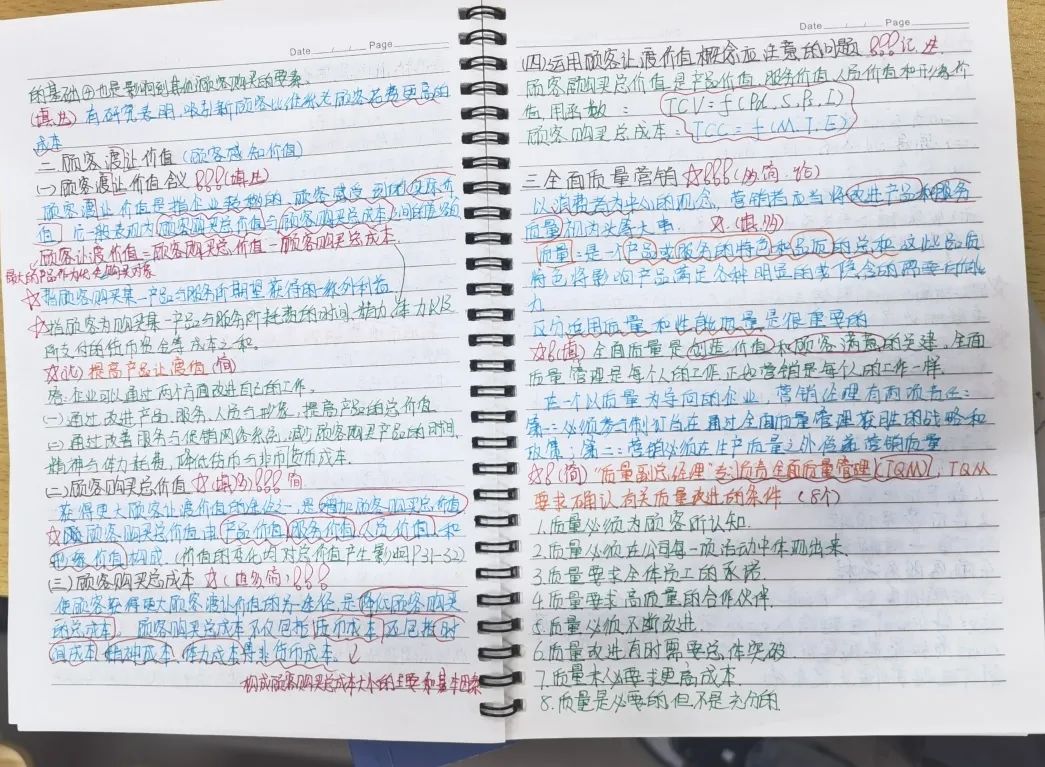 Date / / Page
的基础④也是影响到其他顾客购买的要素.
(填.选) 有研究表明,吸引新顾客比维系老顾客花费更高的
成本
二.顾客渡让价值(顾客感知价值)
(一)顾客渡让价值含义 (填.选)
顾客渡让价值是指企业转移的、顾客感受到的实际价
值,它一般表现为顾客购买总价值与顾客购买总成本之间的差额
顾客让渡价值=顾客购买总价值-顾客购买总成本.
最大的产品作为优先购买对象
☆指顾客购买某一产品与服务所期望获得的一系列利益
☆指顾客为购买某一产品与服务所耗费的时间、精力、体力以及
所支付的货币资金等成本之和.
☆(论)提高产品让渡值(简)
企业可以通过两个方面改进自己的工作.
(一)通过改进产品、服务、人员与形象,提高产品的总价值
(二)通过改善服务与促销网络系统,减少顾客购买产品的时间、
精神与体力耗费,降低货币与非货币成本.
(二)顾客购买总价值☆(填.多) 简
获得更大顾客让渡价值的途径之一,是增加顾客购买总价值
☆顾客购买总价值由产品价值 服务价值 人员价值 和
形象价值 构成 (价值的变化均对总价值产生影响P31-32)
(三)顾客购买总成本☆(填多简)
使顾客获得更大顾客渡让价值的另一途径,是降低顾客购买
的总成本。顾客购买总成本不仅包括货币成本还包括时
间成本.精神成本.体力成本等非货币成本.
构成顾客购买总成本大小的主要和基本因素
Date / / Page
(四)运用顾客让渡价值概念应注意的问题 记 选.
顾客购买总价值是产品价值.服务价值.人员价值和形象价
值用函数: TCV=f(Pd,S,Ps,I)
顾客购买总成本: TCC=f(M.T.E)
三.全面质量营销☆(多.简.论)
以消费者为中心的观念,营销者应当将改进产品和服务
质量视为头等大事. ☆(填.多)
质量:是一个产品或服务的特色和品质的总和,这些品质
特色将影响产品满足各种明显的或隐含的需要的能
力
区分适用质量和性能质量是很重要的
☆(填)全面质量是创造价值和顾客满意的关键,全面
质量管理是每个人的工作,正如营销是每个人的工作一样.
在一个以质量为导向的企业,营销经理有两项责任:
第一:必须参与制订旨在通过全面质量管理获胜的战略和
政策;第二:营销必须在生产质量之外传递营销质量
☆(简)“质量副总经理”专门负责全面质量管理(TQM),TQM
要求确认有关质量改进的条件 (8个)
1.质量必须为顾客所认知.
2.质量必须在公司每一项活动中体现出来.
3.质量要求全体员工的承诺.
4.质量要求高质量的合作伙伴.
5.质量必须不断改进.
6.质量改进有时需要总体突破
7.质量未必要求更高成本.
8.质量是必要的,但不是充分的